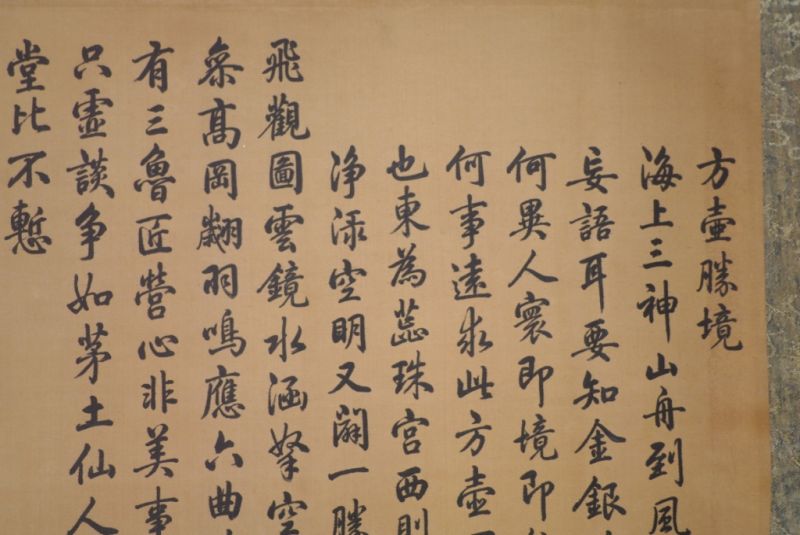 方壺勝境
海上三神山舟到風
妄語耳要知金銀
何異人寰即境即
何事遠求此方壺
也東為蕊珠宮西則
淨淥空明又闢一勝
飛觀圖雲鏡水涵拏空
叅高岡翽羽鳴應六曲
有三魯匠營心非美事
只虛談爭如茅土仙人
堂比不慙